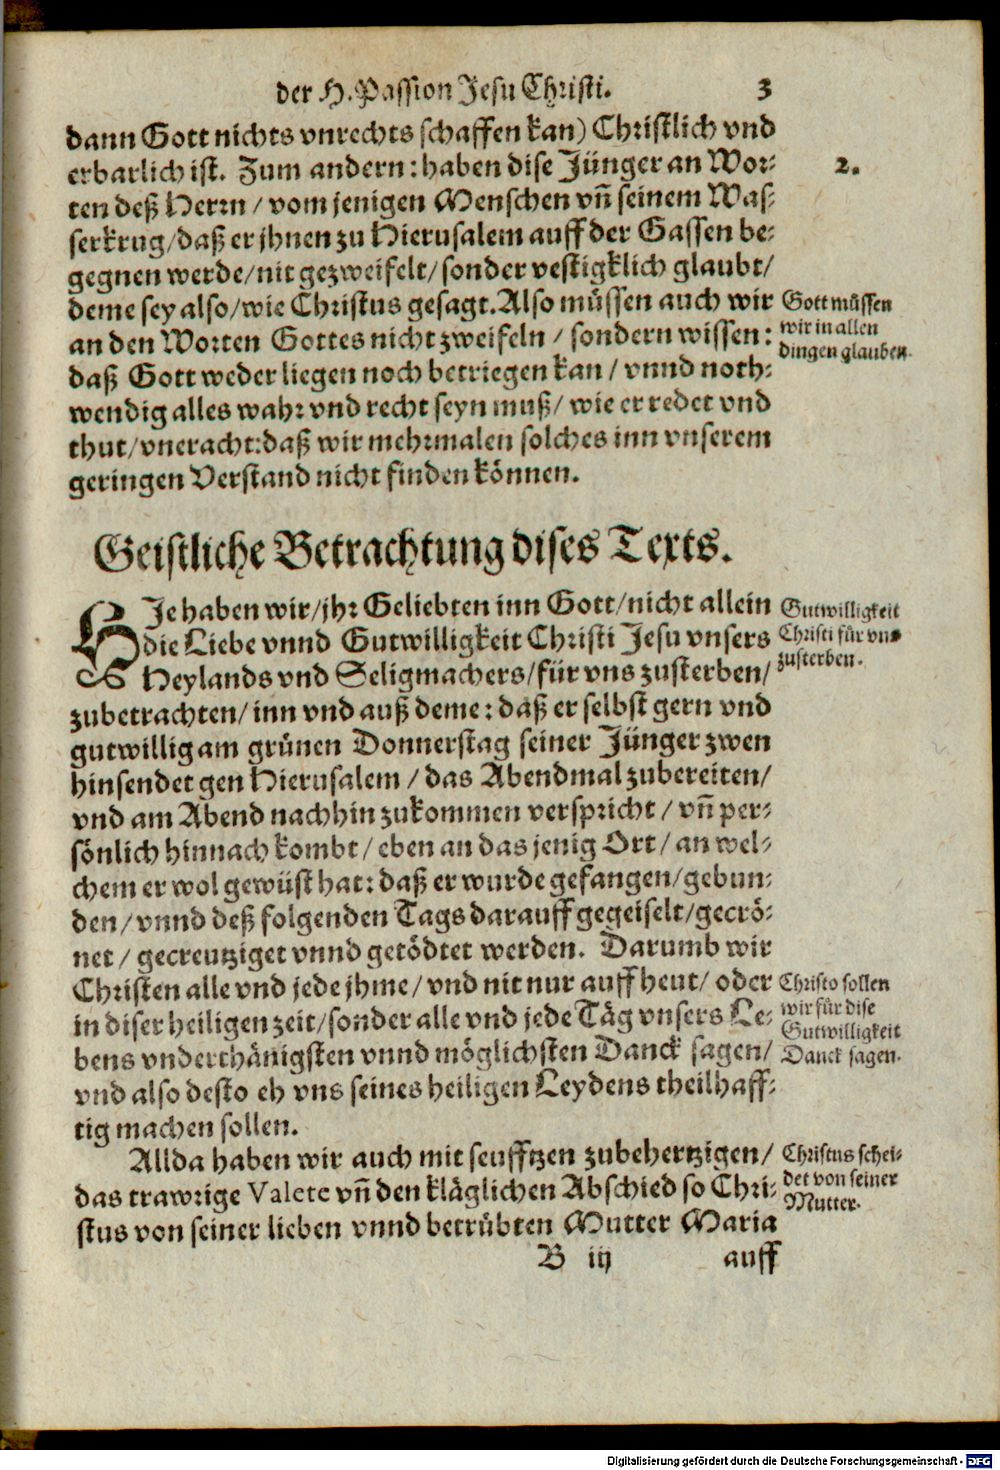 der H. Passion Jesu Christi. 3
dann Gott nichts vnrechts schaffen kan) Christlich vnd
erbarlich ist. Zum andern: haben dise Jünger an Wor-
2.
ten deß Herrn / vom jenigen Menschen vñ seinem Was-
serkrug / daß er jhnen zu Hierusalem auff der Gassen be-
gegnen werde / nit gezweifelt / sonder vestigklich glaubt /
deme sey also / wie Christus gesagt. Also müssen auch wir
an den Worten Gottes nicht zweifeln / sondern wissen:
daß Gott weder liegen noch betriegen kan / vnnd noth-
wendig alles wahr vnd recht seyn muß / wie er redet vnd
thut / vneracht: daß wir mehrmalen solches inn vnserem
geringen Verstand nicht finden können.
Gott müssen
wir in allen
dingen glauben.
Geistliche Betrachtung dises Texts.
HJe haben wir / jhr Geliebten inn Gott / nicht allein
die Liebe vnnd Gutwilligkeit Christi Jesu vnsers
Heylands vnd Seligmachers / für vns zusterben /
zubetrachten / inn vnd auß deme: daß er selbst gern vnd
gutwillig am grünen Donnerstag seiner Jünger zwen
hinsendet gen Hierusalem / das Abendmal zubereiten /
vnd am Abend nachhin zukommen verspricht / vñ per-
sönlich hinnach kombt / eben an das jenig Ort / an wel-
chem er wol gewüst hat: daß er wurde gefangen / gebun-
den / vnnd deß folgenden Tags darauff gegeiselt / gecrö-
net / gecreutziget vnnd getödtet werden. Darumb wir
Christen alle vnd jede jhme / vnd nit nur auff heut / oder
in diser heiligen zeit / sonder alle vnd jede Täg vnsers Le-
bens vnderthänigsten vnnd möglichsten Danck sagen /
vnd also desto eh vns seines heiligen Leydens theilhaff-
tig machen sollen.
Gutwilligkeit
Christi für vns
zusterben.
Christo sollen
wir für dise
Gutwilligkeit
Danck sagen.
Allda haben wir auch mit seufftzen zubehertzigen /
das trawrige Valete vñ den kläglichen Abschied so Chri-
stus von seiner lieben vnnd betrübten Mutter Maria
Christus schei-
det von seiner
Mutter.
B iij auff
Digitalisierung gefördert durch die Deutsche Forschungsgemeinschaft - DFG